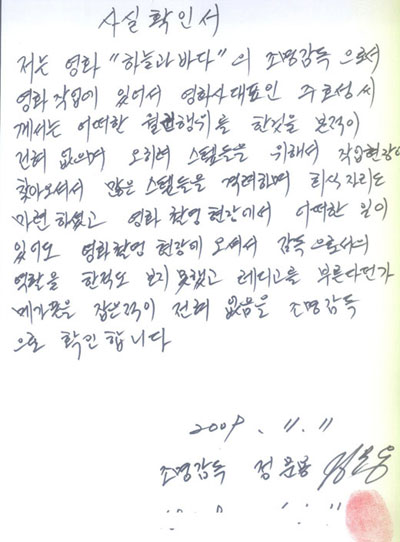 사실 확인서
저는 영화 "하늘과 바다"의 조명감독 으로서
영화 작업에 있어서 영화사대표인 주호성 씨
께서는 어떠한 월권행위를 한것을 본적이
전혀 없으며 오히려 스텝들을 위해서 작업현장에
찾아오셔서 많은 스텝들을 격려하며 회식 자리도
마련 하셨고 영화 촬영 현장에서 어떠한 일이
있어도 영화촬영 현장에 오셔서 감독으로서의
역할을 한적도 보지 못했고 레디고를 부른다던가
메가폰을 잡은적이 전혀 없음을 조명감독
으로 확인 합니다
2009. 11. 11
조명감독 정